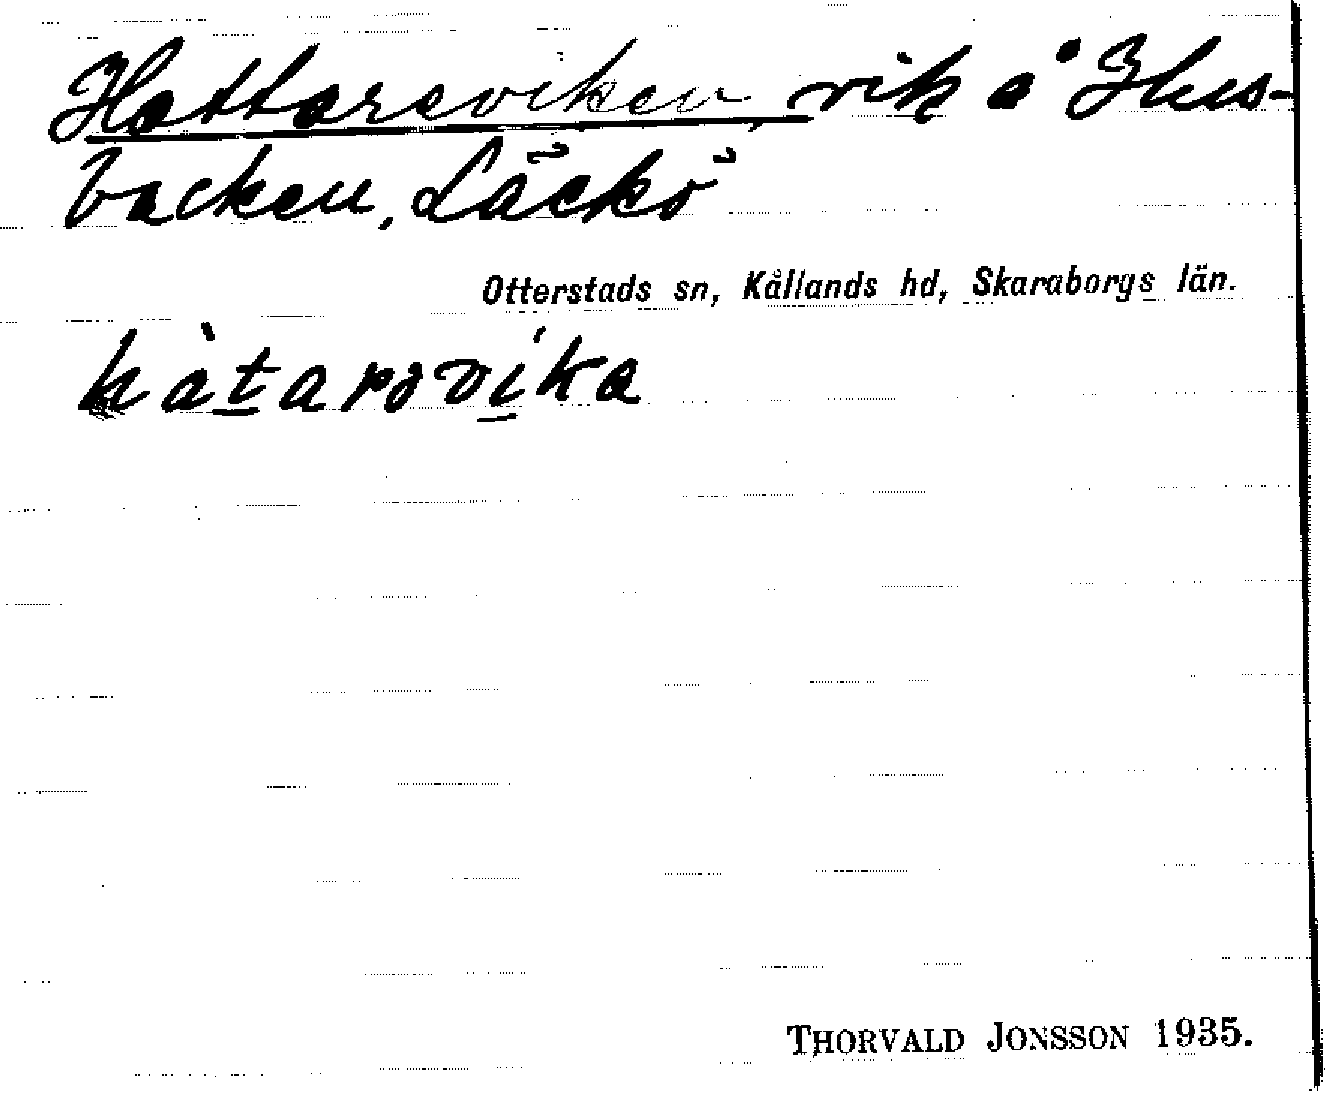 Hattareviken, vik å Hus-
backen, Läckö
Otterstads sn, Kållands hd, Skaraborgs län.
hàtarəvika
THORVALD JONSSON 1935.